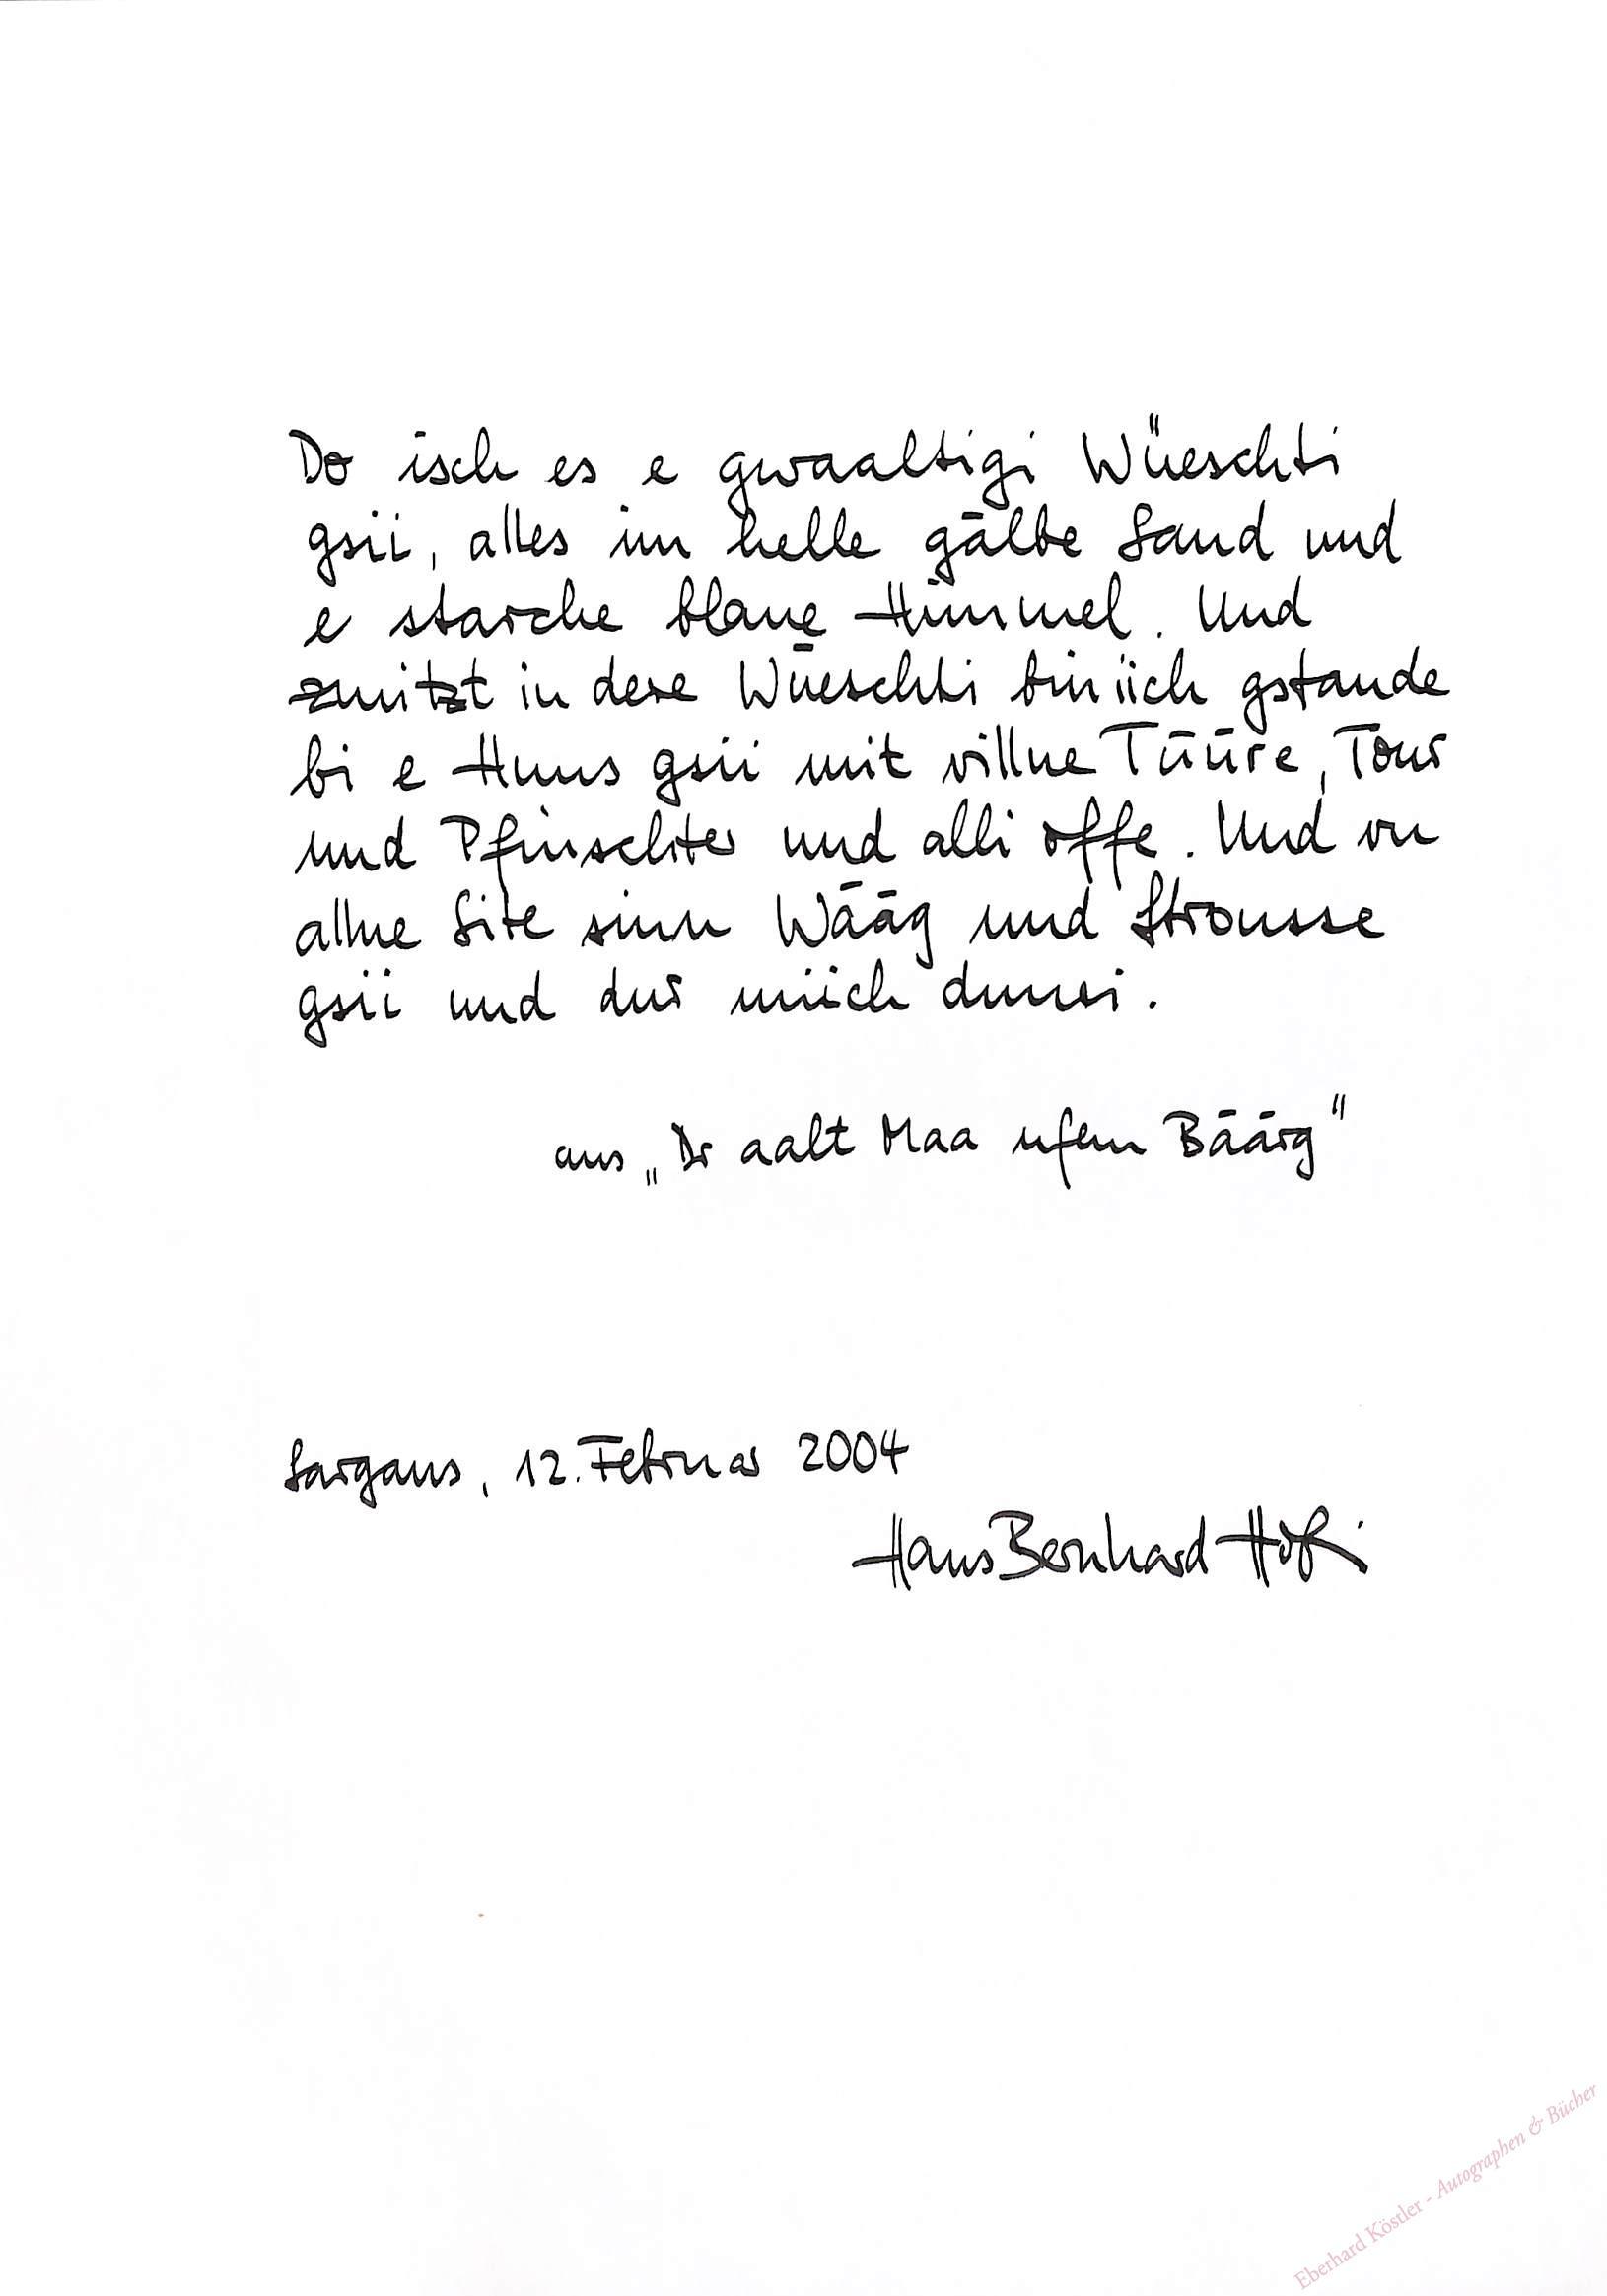 Do isch es e gwaaltigi Wüeschti
gsii, alles im helle gälbe Sand und
e starche blaue Himmel. Und
zmitzt in dere Wüeschti bin iich gstande
bi e Huus gsii mit villne Tüüre, Tour
und Pfinschter und alli offe. Und vu
allne Site sinn Wääg und Strousse
gsii und dur miich durei.
aus „Dr aalt Maa ufem Bäärg"
Sargans, 12. Februar 2004
Hans Bernhard Hobi
Eberhard Köstler - Autographen & Bücher